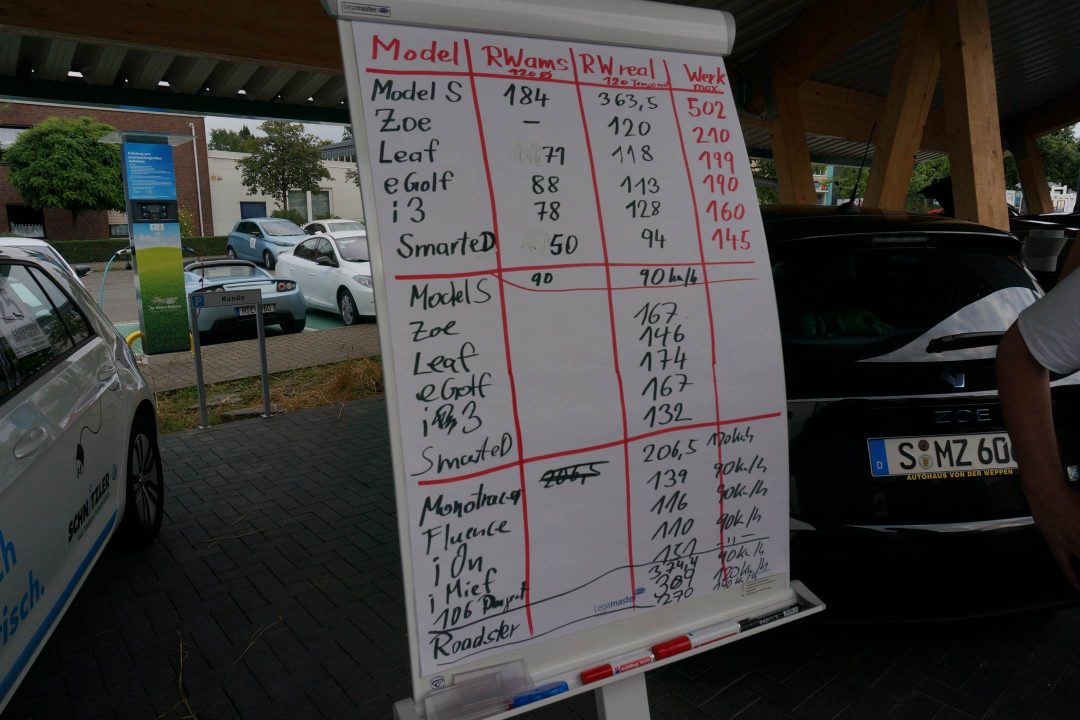 Legamaster
Model RWams RW real Werk
120 120 max.
Model S 184 363,5 502
Zoe – 120 210
Leaf 71 118 199
eGolf 88 113 190
i3 78 128 160
SmarteD 50 94 145
90 90 km/h
Model S
Zoe 167
Leaf 146
eGolf 174
i 3 167
SmarteD 132
Monotracer 206,5 120km/h
Fluence 139 90km/h
i On 116 90km/h
i Mief 110 90km/h
106 Peugeot 151 -"-
Roadster 374,4 90km/h
309 120km/h
270
Legamaster
P Kunde
SCHNITZLER
ZOE
D S MZ 60
AUTOHAUS VON DER WEPPEN